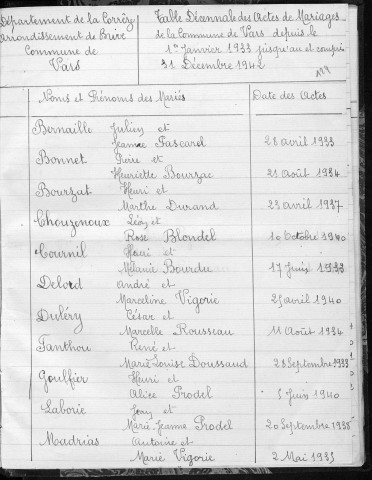 Département de la Corrèze
arrondissement de Brive
Commune de
Vars
Table Décennale des Actes de Mariages
de la Commune de Vars depuis le
1er Janvier 1933 jusqu'au et compris
31 Décembre 1942
Noms et Prénoms des Mariés
Date des Actes
Bernaille Julien et
Jeanne Pascarel 28 avril 1933
Bonnet Pierre et
Henriette Bourzac 21 Août 1934
Bourzat Henri et
Marthe Durand 23 avril 1937
Chouzenoux Léon et
Rose Blondel 10 Octobre 1940
Cournil Henri et
Mélanie Bourdu 17 Juin 1933
Delord André et
Marceline Vigorie 25 avril 1940
Duléry César et
Marcelle Rousseau 11 Août 1934
Fanthou René et
Marie Louise Doussaud 28 Septembre 1933
Goulfier Henri et
Alice Prodel 5 Juin 1940
Laborie Jean et
Marie Jeanne Prodel 20 Septembre 1938
Madrias Antoine et
Marie Vigorie 2 Mai 1935